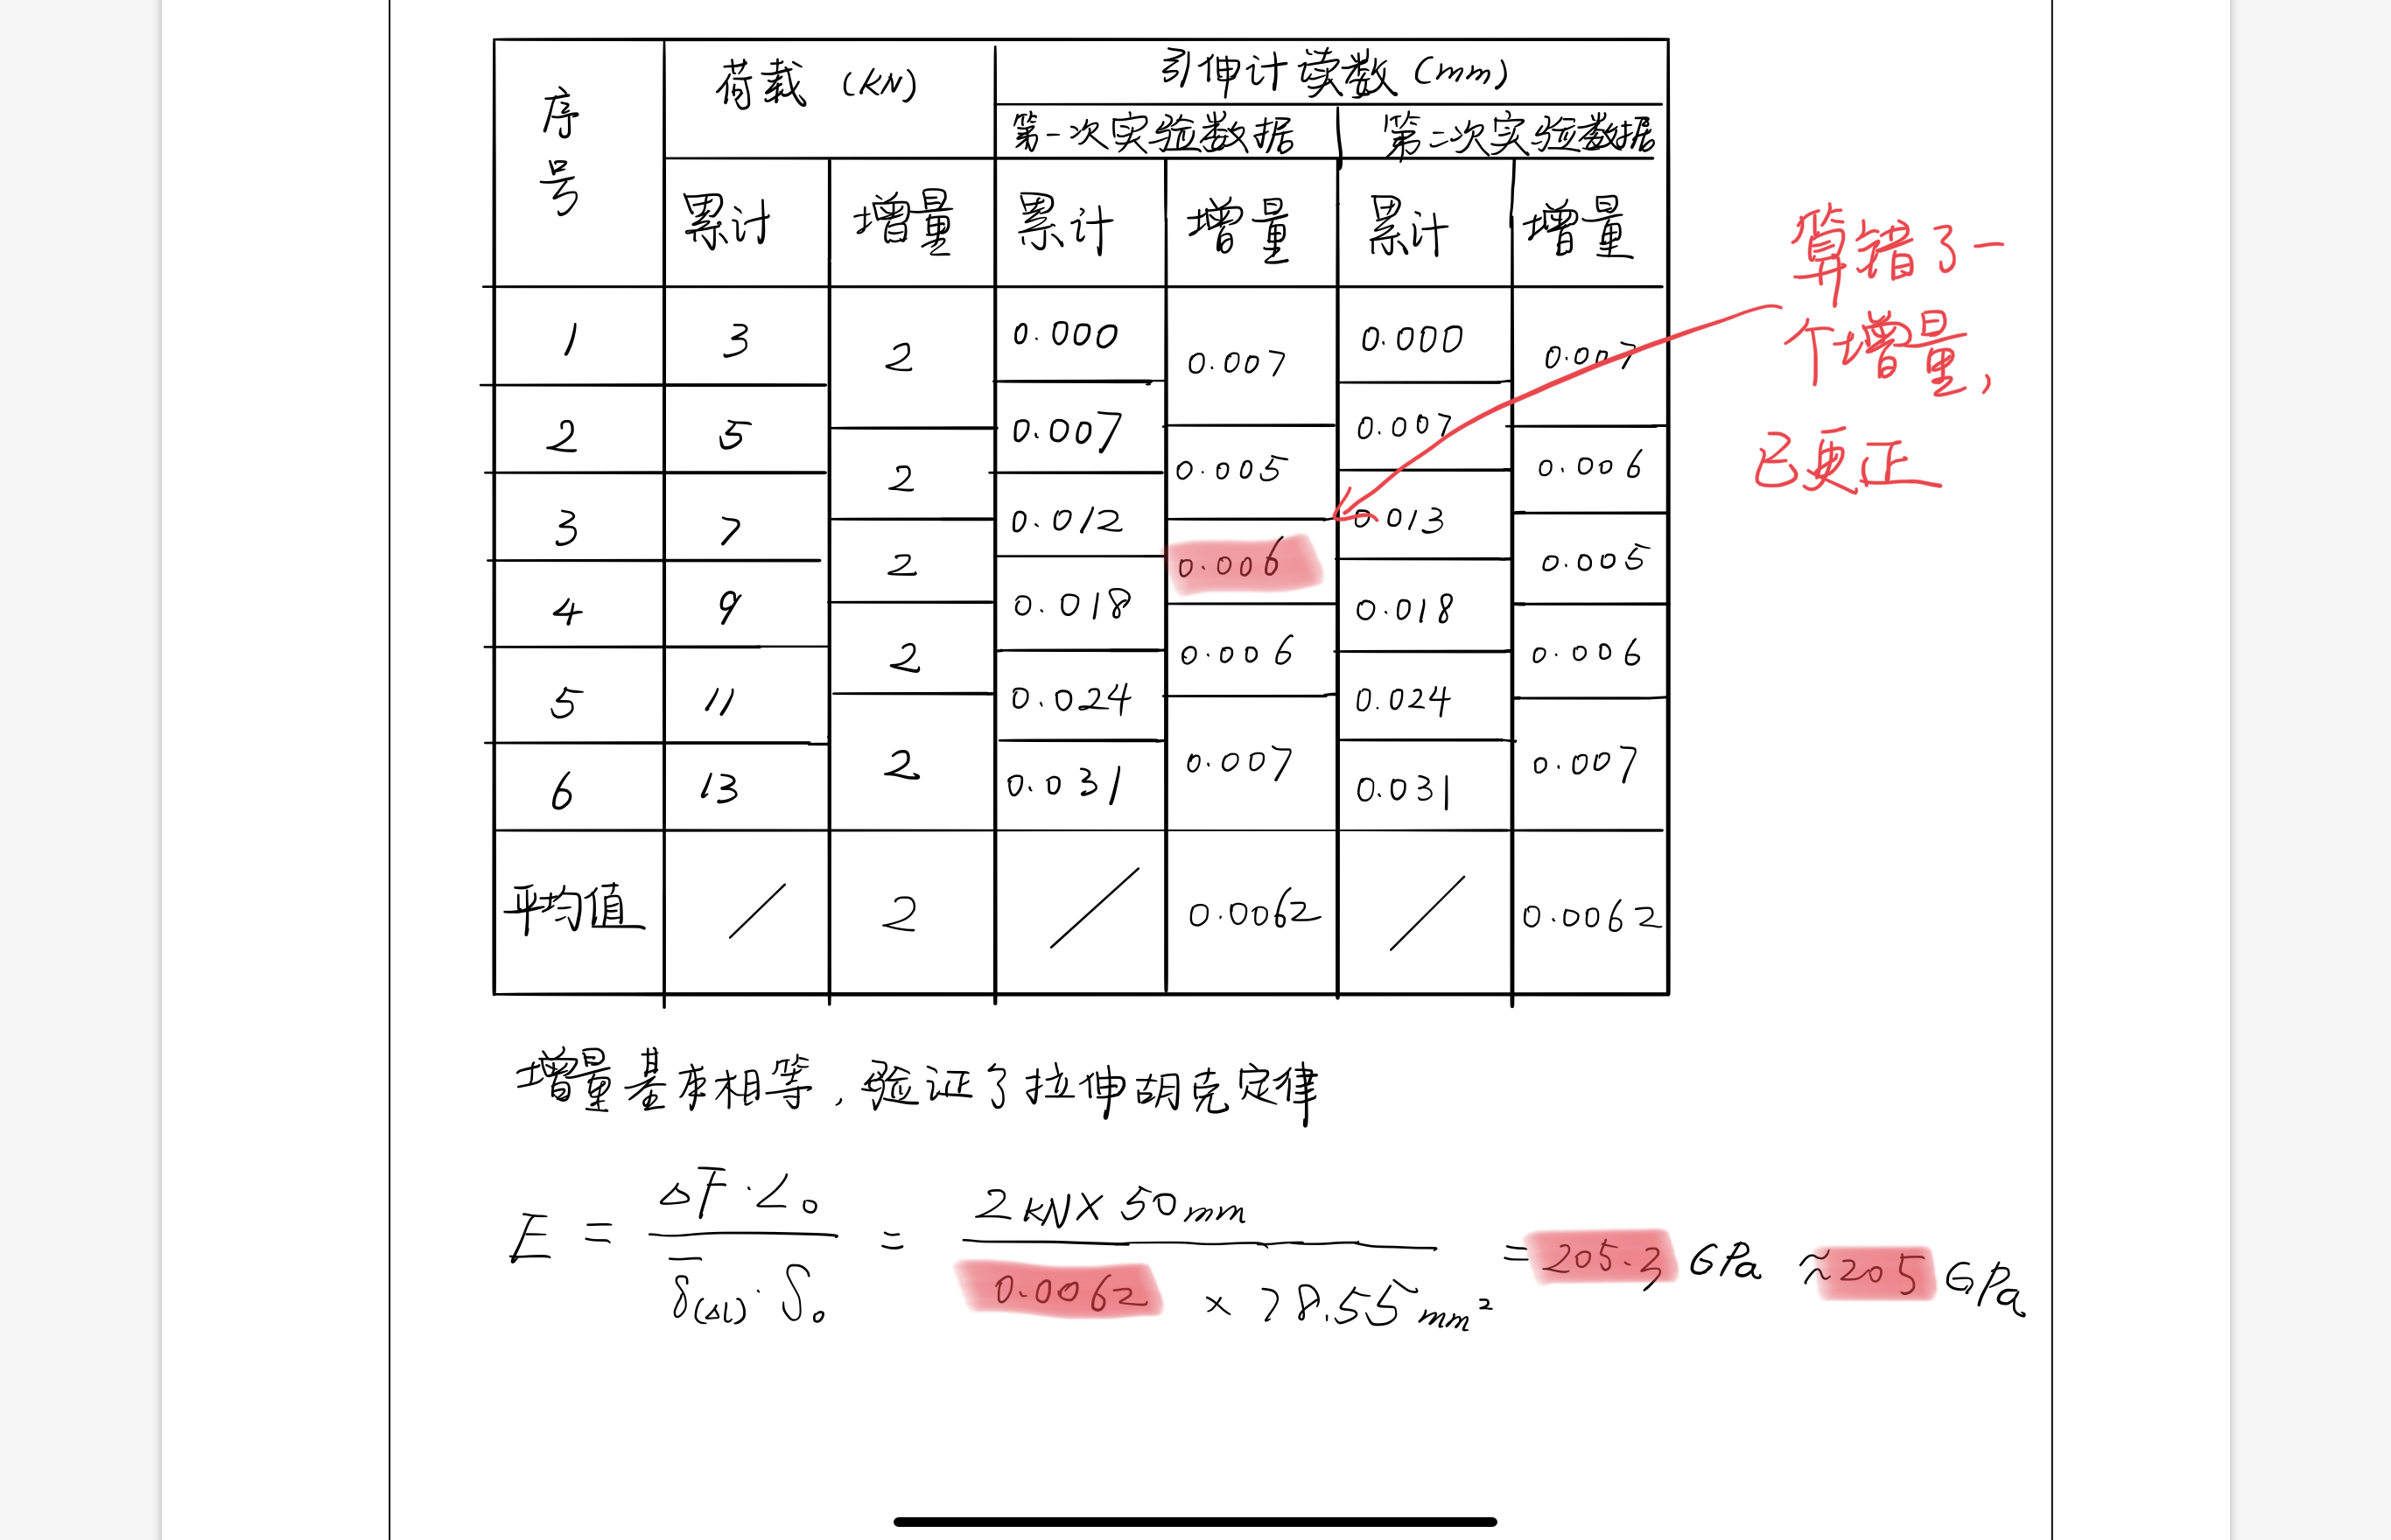 序号 荷载 (kN) 引伸计读数 (mm)
第一次实验数据 第二次实验数据
累计 增量 累计 增量 累计 增量
算错了一
个增量,
已更正
1 3 2 0.000 0.007 0.000 0.007
2 5 2 0.007 0.005 0.007 0.006
3 7 2 0.012 0.006 0.013 0.005
4 9 2 0.018 0.006 0.018 0.006
5 11 2 0.024 0.007 0.024 0.007
6 13 0.031 0.031
平均值 / 2 / 0.0062 / 0.0062
增量基本相等,验证了拉伸胡克定律
E = ΔF·L₀ / δ̄(Δl)·S₀ = 2kN×50mm / 0.0062 × 78.55mm² = 205.3 GPa ≈ 205 GPa